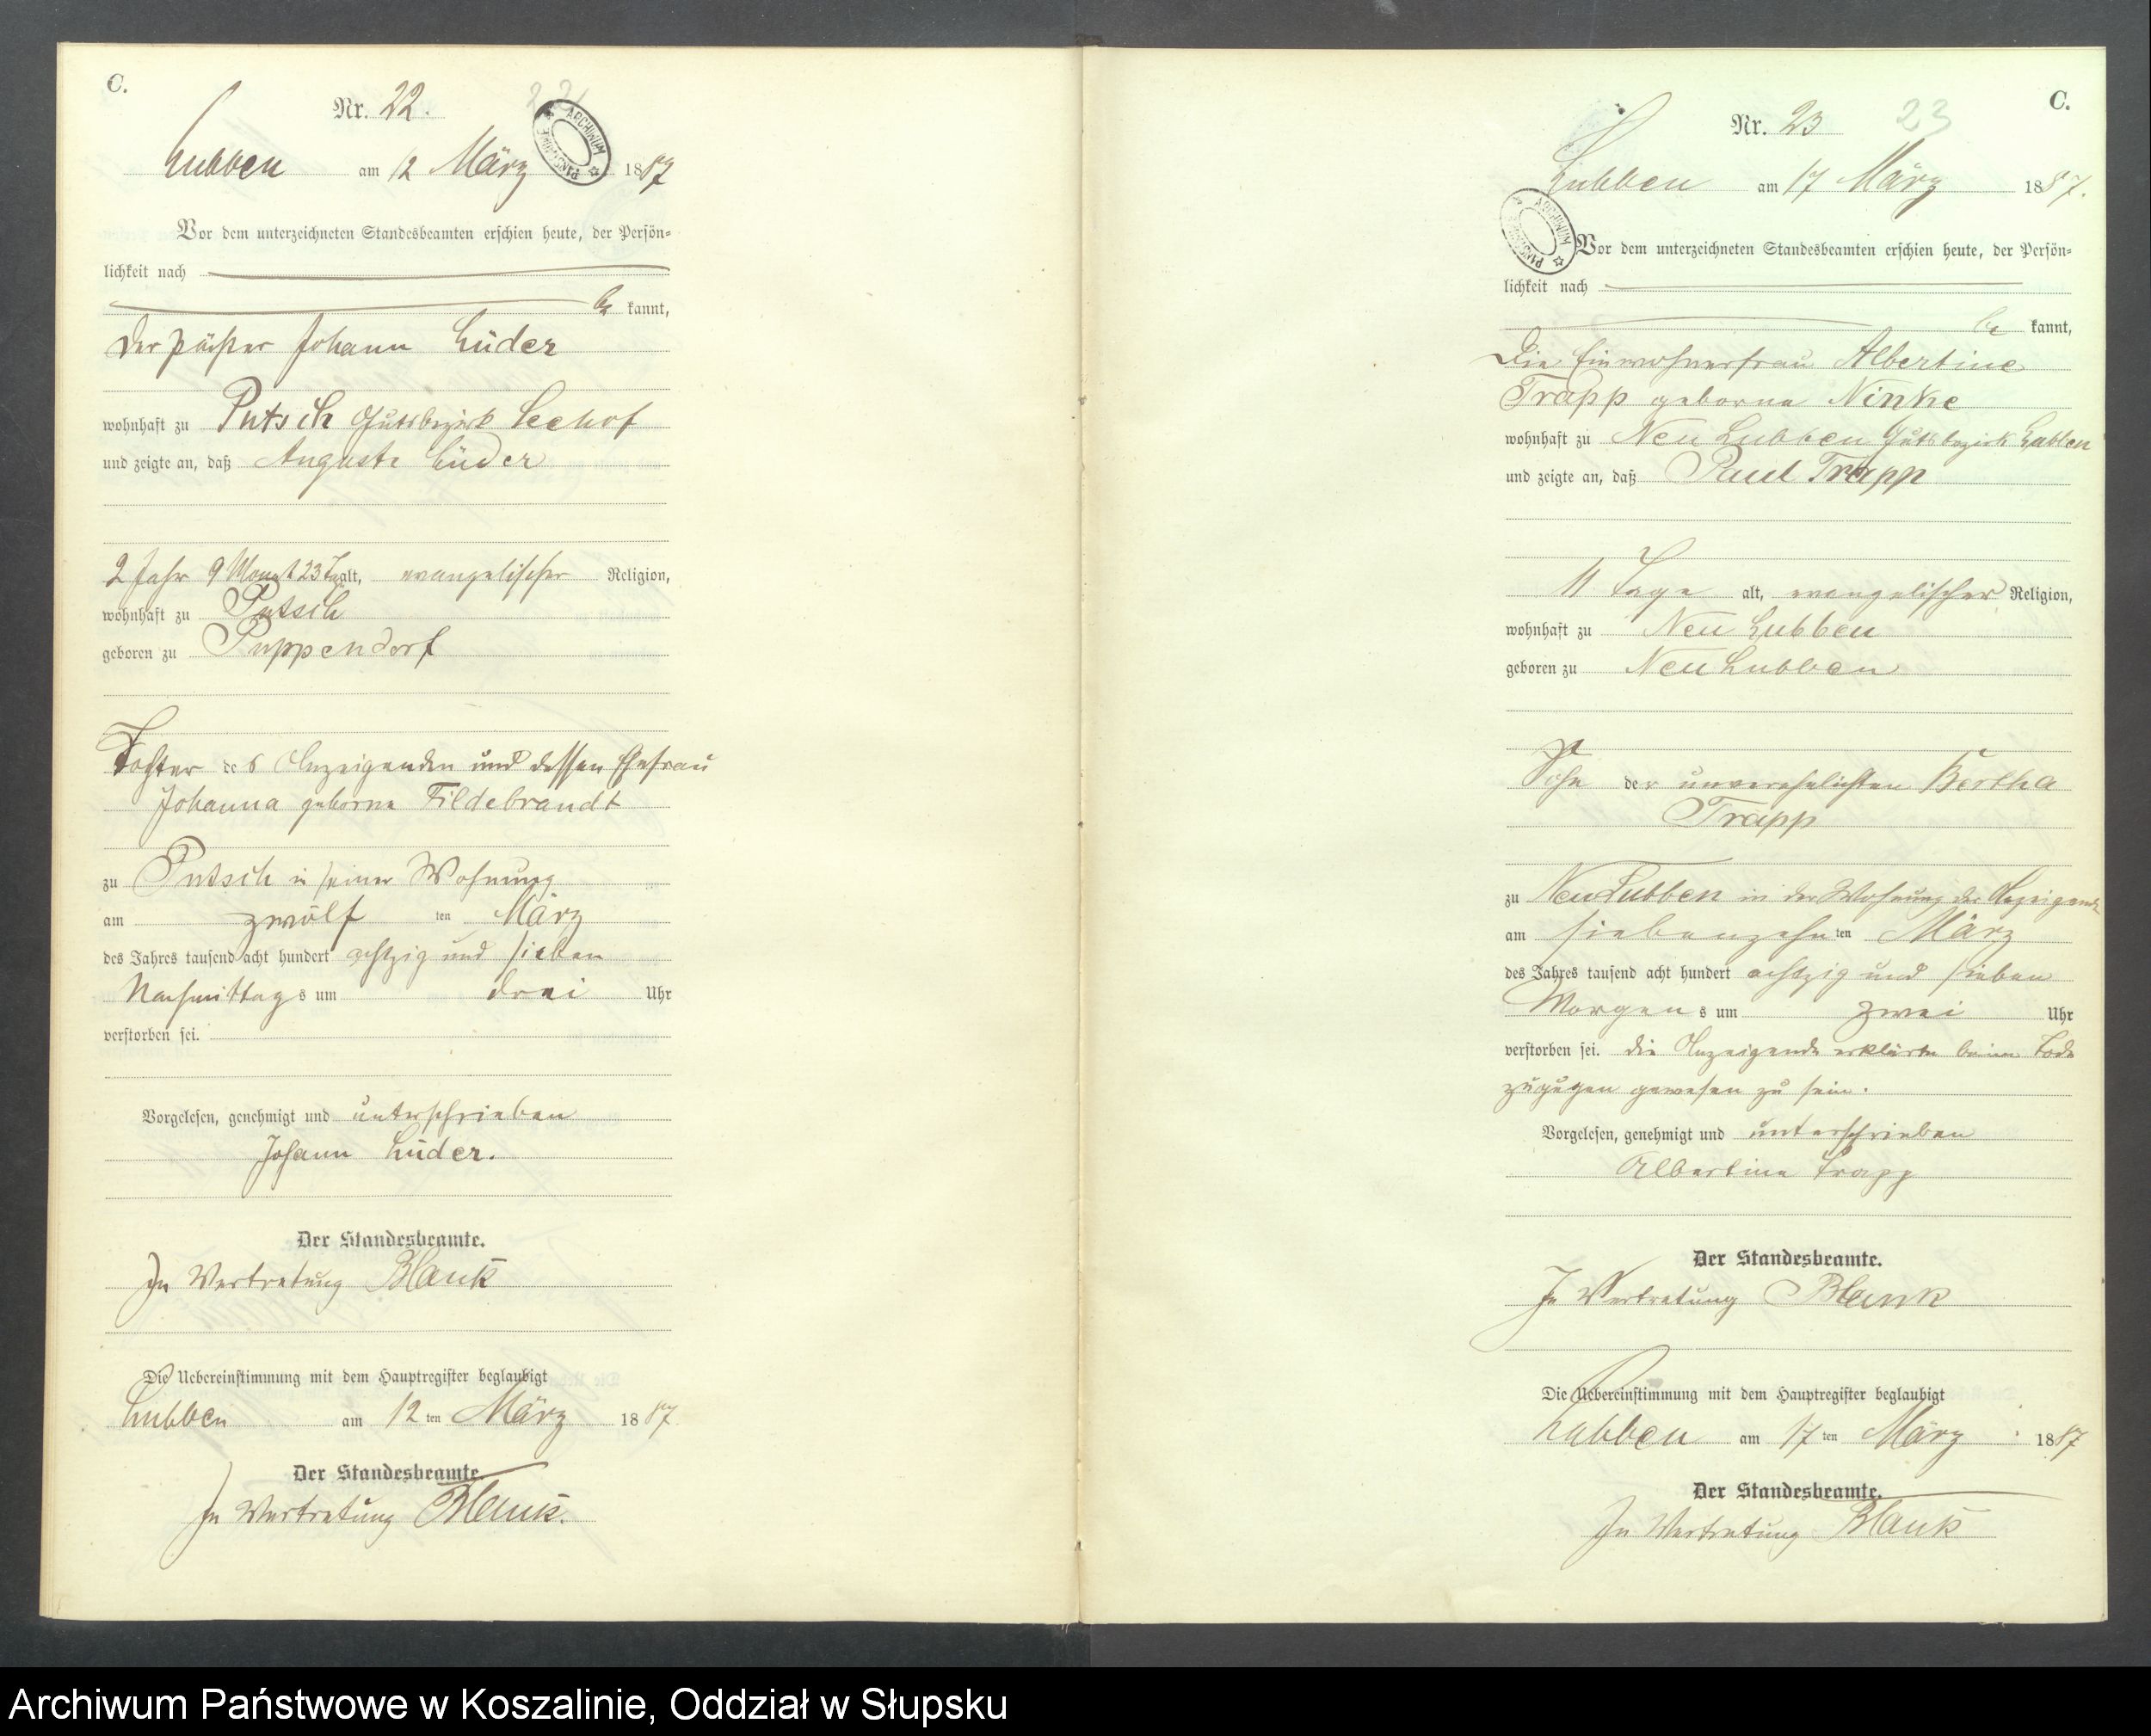 C.
Nr. 22.
22
ARCHIWUM PAŃSTWOWE
Lubben am 12 März 1887
Vor dem unterzeichneten Standesbeamten erschien heute, der Persön=
lichkeit nach
be kannt,
Der Pächter Johann Lüder
wohnhaft zu Putsch Gutsbezirk Seehof
und zeigte an, daß Auguste Lüder
2 Jahr 9 Monat 23 Tg alt, evangelischer Religion,
wohnhaft zu Putsch
geboren zu Puppendorf
Tochter des Anzeigenden und dessen Ehefrau
Johanna geborne Fildebrandt
zu Putsch in seiner Wohnung
am zwölf ten März
des Jahres tausend acht hundert achtzig und sieben
Nachmittags um drei Uhr
verstorben sei.
Vorgelesen, genehmigt und unterschrieben
Johann Lüder.
Der Standesbeamte.
In Vertretung Blank
Die Uebereinstimmung mit dem Hauptregister beglaubigt
Lubben am 12 ten März 1887
Der Standesbeamte.
In Vertretung Blank.
C.
Nr. 23
23
Lubben am 17 März 1887.
ARCHIWUM PAŃSTWOWE
Vor dem unterzeichneten Standesbeamten erschien heute, der Persön=
lichkeit nach
be kannt,
Die Einwohnerfrau Albertine
Trapp geborne Ninke
wohnhaft zu Neu Lubben Gutsbezirk Lubben
und zeigte an, daß Paul Trapp
11 Tage alt, evangelischer Religion,
wohnhaft zu Neu Lubben
geboren zu Neu Lubben
Sohn der unverehelichten Bertha
Trapp
zu Neu Lubben in der Wohnung der Anzeigende
am siebenzehn ten März
des Jahres tausend acht hundert achtzig und sieben
Morgens um zwei Uhr
verstorben sei. die Anzeigende erklärte beim Tode
zugegen gewesen zu sein.
Vorgelesen, genehmigt und unterschrieben
Albertine Trapp
Der Standesbeamte.
In Vertretung Blank
Die Uebereinstimmung mit dem Hauptregister beglaubigt
Lubben am 17 ten März 1887
Der Standesbeamte.
In Vertretung Blank
Archiwum Państwowe w Koszalinie, Oddział w Słupsku